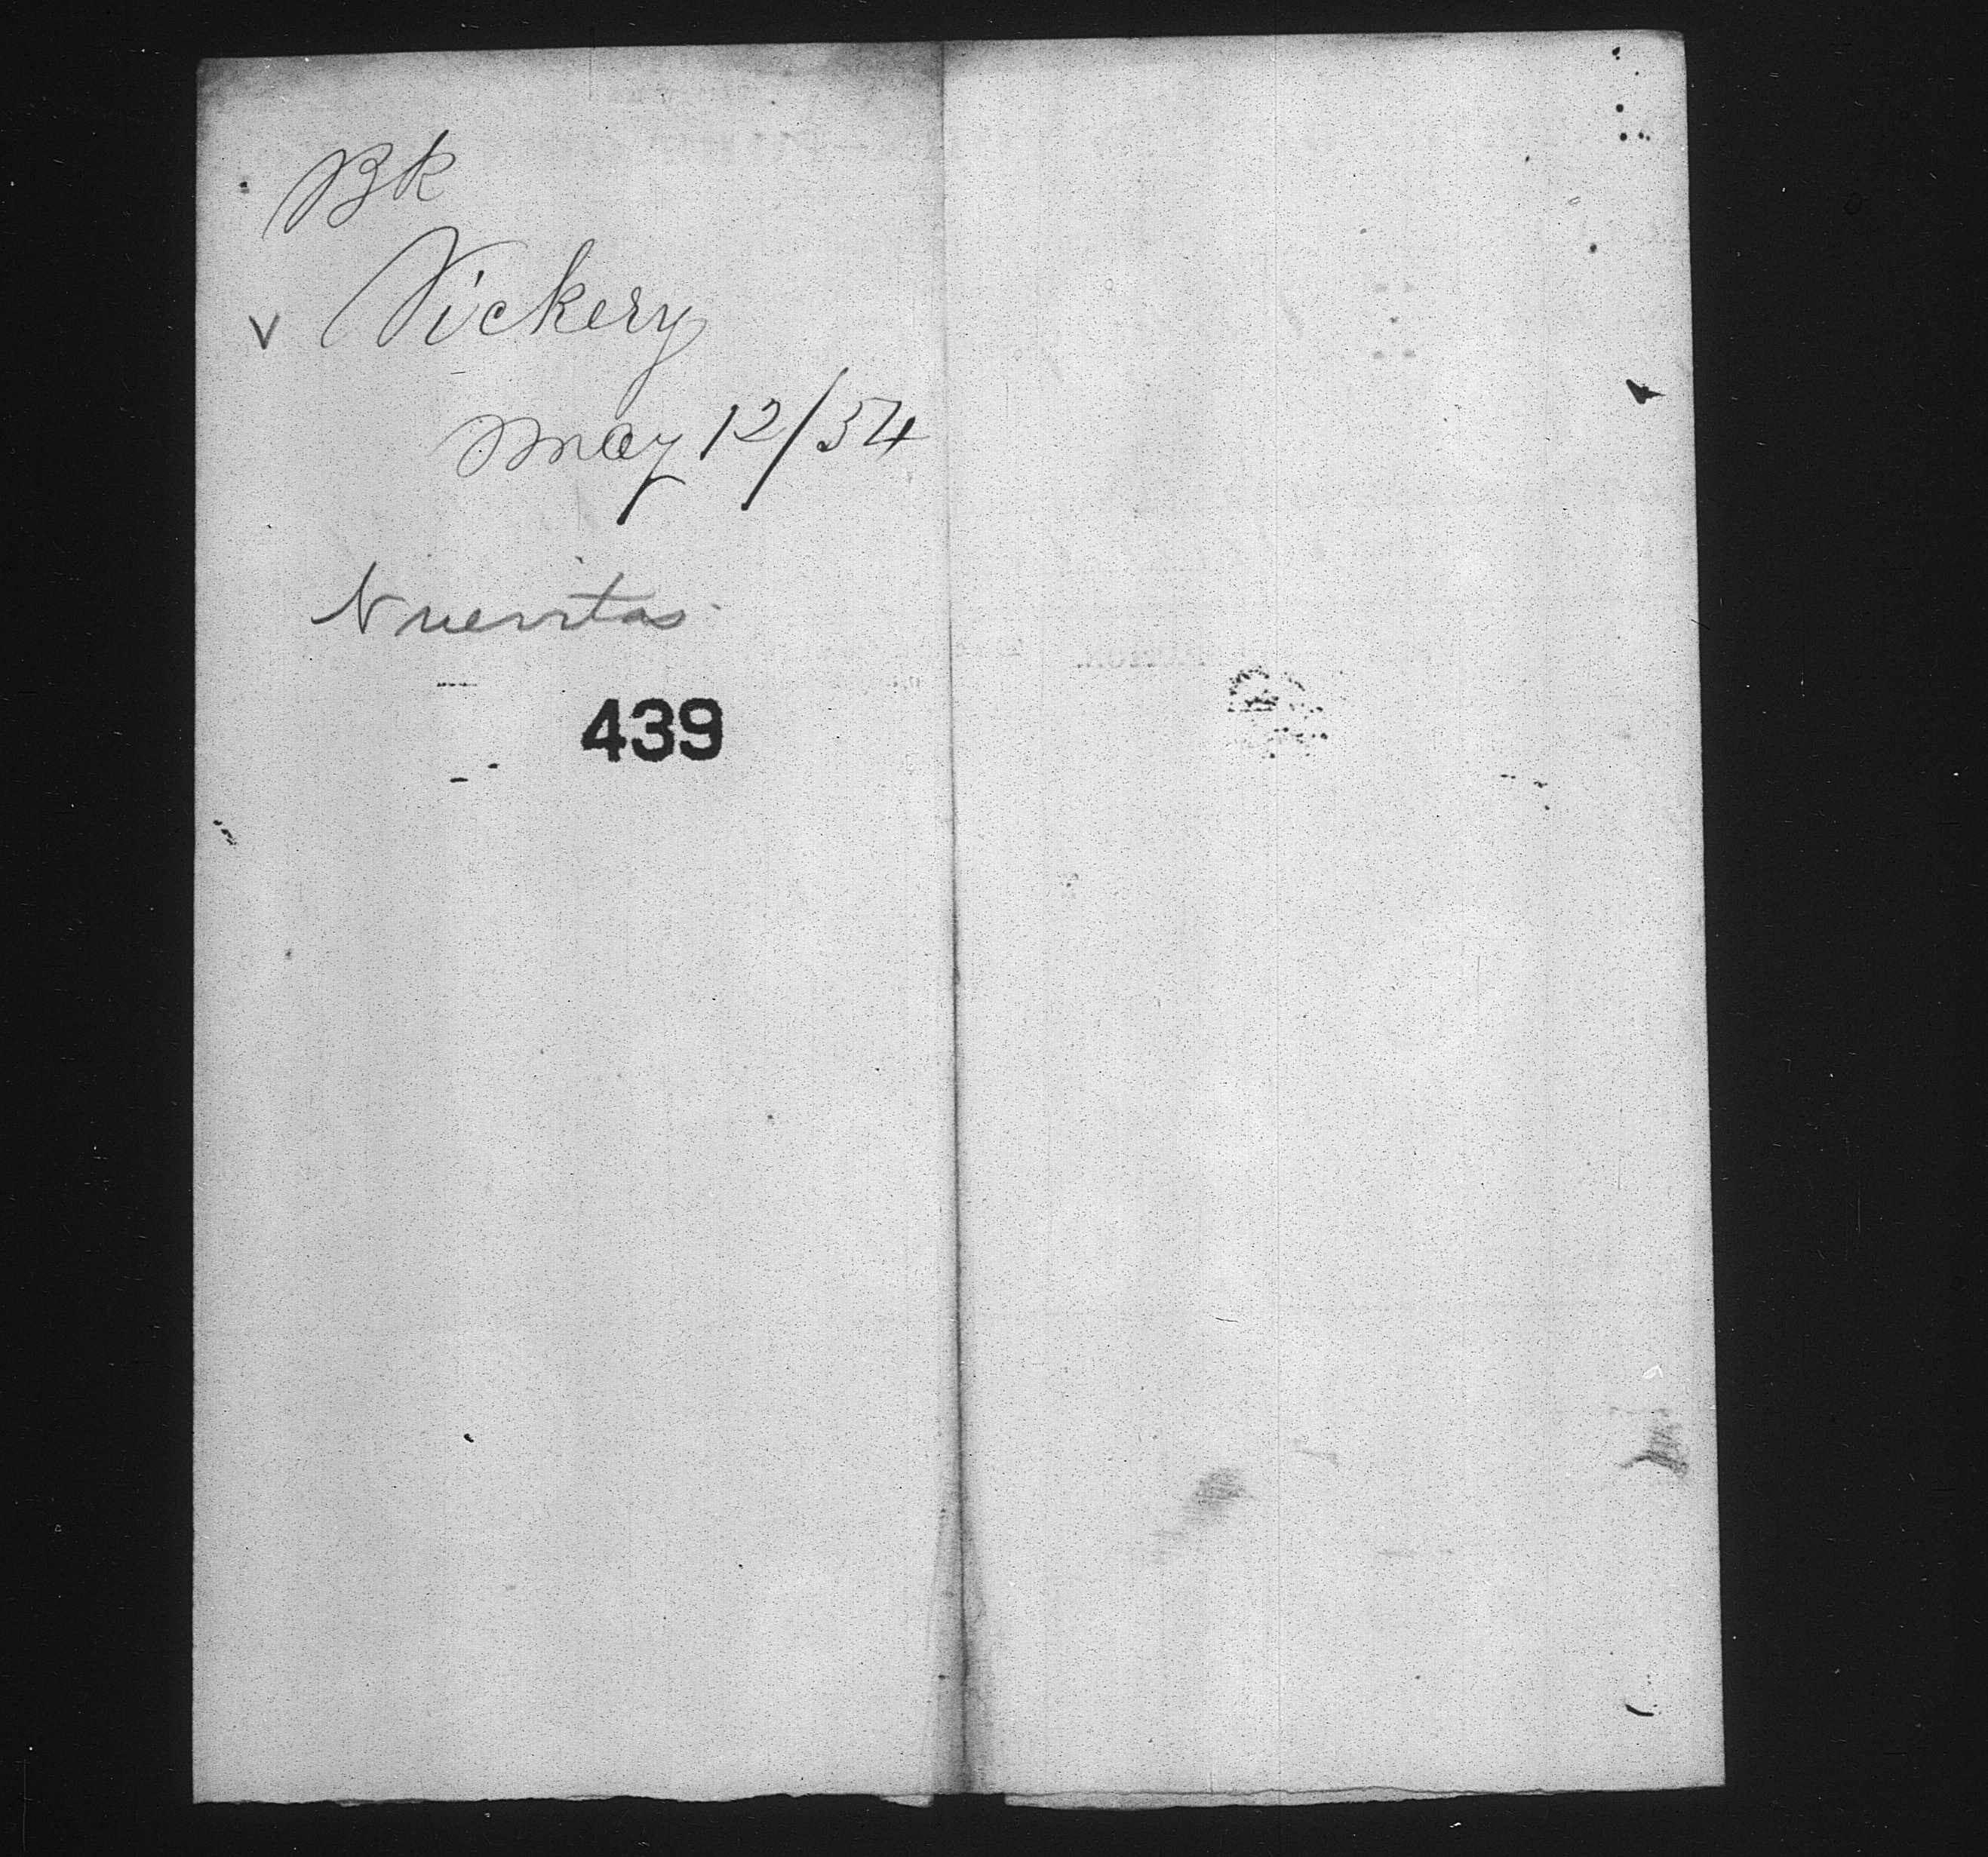 Bk
v Vickery
May 12/54
Nuevitas
439